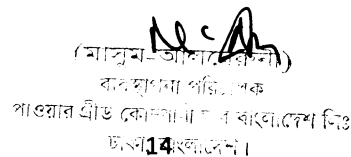 (মাসুম-আলবেরুনী)
ব্যবস্থাপনা পরিচালক
পাওয়ার গ্রীড কোম্পানী অব বাংলাদেশ লিঃ
ঢাকা, বাংলাদেশ।
14